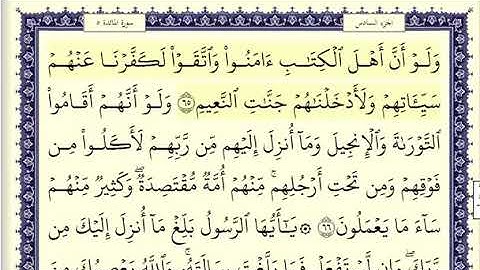 الجزء السادس سورة المائدة ٥
وَلَوْ أَنَّ أَهْلَ ٱلْكِتَٰبِ ءَامَنُوا۟ وَٱتَّقَوْا۟ لَكَفَّرْنَا عَنْهُمْ
سَيِّـَٔاتِهِمْ وَلَأَدْخَلْنَٰهُمْ جَنَّٰتِ ٱلنَّعِيمِ ٦٥ وَلَوْ أَنَّهُمْ أَقَامُوا۟
ٱلتَّوْرَىٰةَ وَٱلْإِنجِيلَ وَمَآ أُنزِلَ إِلَيْهِم مِّن رَّبِّهِمْ لَأَكَلُوا۟ مِن
فَوْقِهِمْ وَمِن تَحْتِ أَرْجُلِهِم ۚ مِّنْهُمْ أُمَّةٌ مُّقْتَصِدَةٌ ۖ وَكَثِيرٌ مِّنْهُمْ
سَآءَ مَا يَعْمَلُونَ ٦٦ ۞ يَٰٓأَيُّهَا ٱلرَّسُولُ بَلِّغْ مَآ أُنزِلَ إِلَيْكَ مِن
رَّبِّكَ ۖ وَإِن لَّمْ تَفْعَلْ فَمَا بَلَّغْتَ رِسَالَتَهُۥ ۚ وَٱللَّهُ يَعْصِمُكَ مِنَ